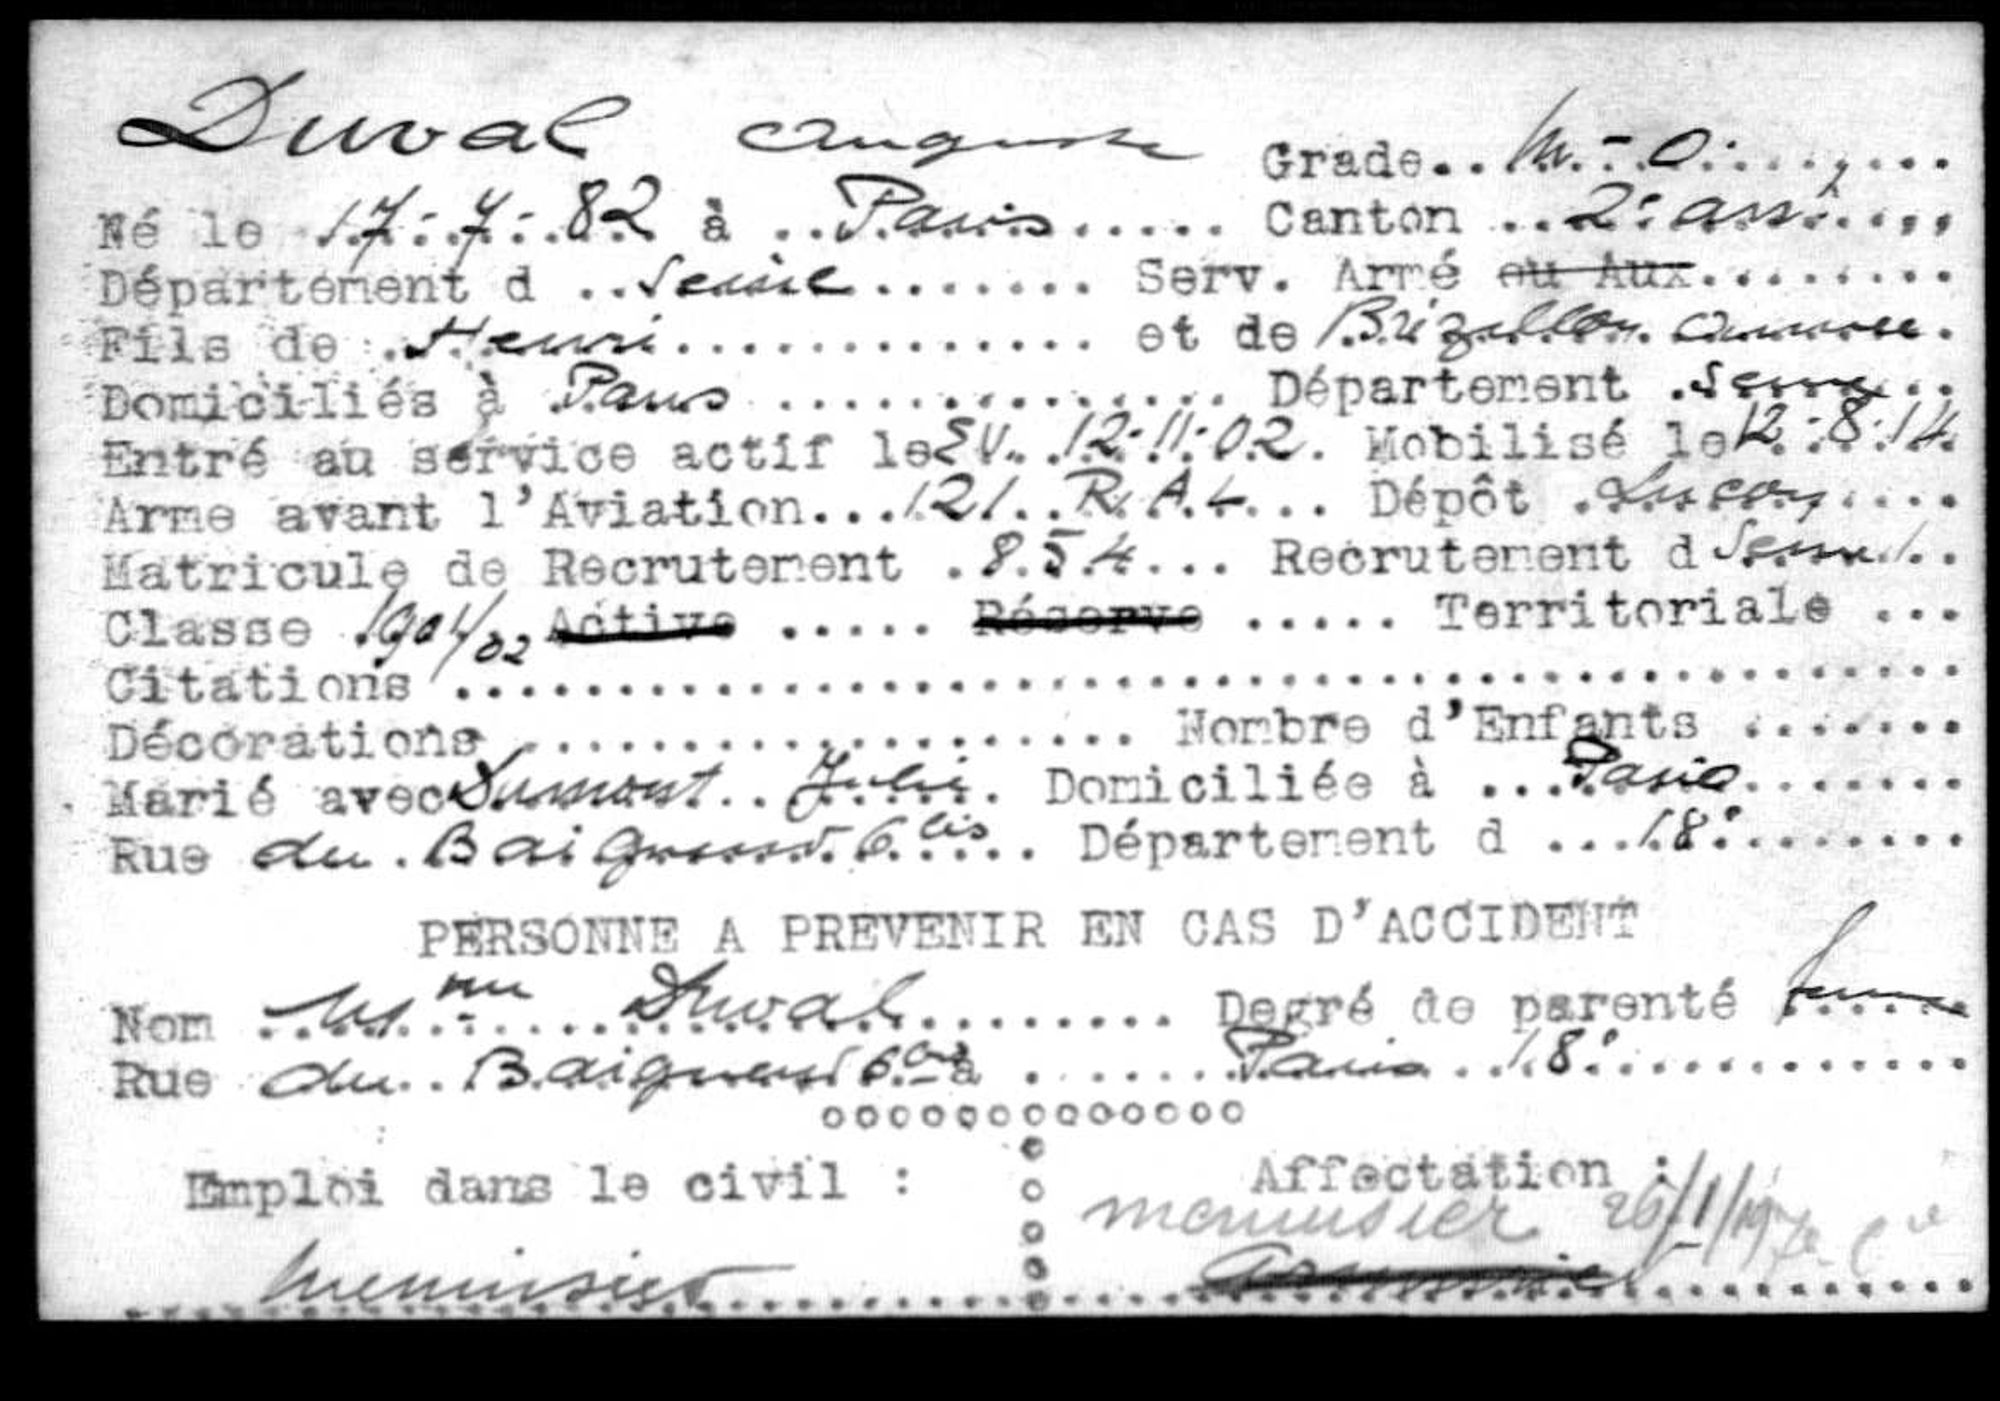 Duval Auguste Grade.. M.-O.........
Né le 17-7-82 à ..Paris..... Canton ...2e arrt....
Département d ..Seine....... Serv. Armé ou Aux.......
Fils de ..Henri............. et de
Domiciliés à Paris ............. Département .Seine..
Entré au service actif le EV. 12-11-02. Mobilisé le 12-8-14
Arme avant l'Aviation...121..R.A.L... Dépôt .Luçon....
Matricule de Recrutement .854... Recrutement d Seine 1..
Classe 1901/02 Active ..... Réserve ..... Territoriale ...
Citations .............................................
Décorations ................... Nombre d'Enfants .......
Marié avec Dumont.. Julie. Domiciliée à ...Paris.......
Rue du. Baigneur. 6 bis... Département d ...18e.......
PERSONNE A PREVENIR EN CAS D'ACCIDENT
Nom ..Mme Duval......... Degré de parenté femme
Rue du.. Baigneur 6 bis à ......Paris...18e...........
oooooooooooooo
Emploi dans le civil : Affectation :
menuisier 26/1/19
menuisier